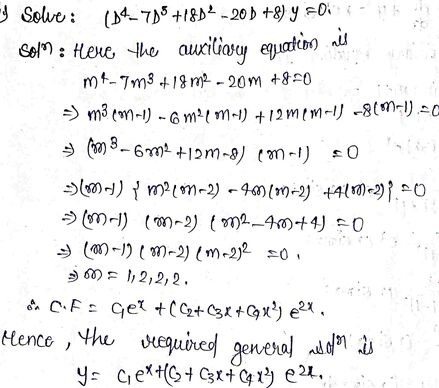 ) Solve: (D⁴-7D³+18D²-20D+8) y = 0.
Solⁿ: Here, the auxiliary equation is
m⁴-7m³+18m²-20m+8=0
⇒ m³(m-1) -6m²(m-1) +12m(m-1) -8(m-1)=0
⇒ (m³-6m²+12m-8) (m-1) = 0
⇒ (m-1) { m²(m-2) -4m(m-2) +4(m-2)} = 0
⇒ (m-1) (m-2) (m²-4m+4) = 0
⇒ (m-1) (m-2) (m-2)² = 0.
⇒ m = 1,2,2,2.
∴ C.F = C₁eˣ + (C₂+C₃x+C₄x²) e²ˣ.
Hence, the required general solⁿ is
y = C₁eˣ+(C₂+C₃x+C₄x²) e²ˣ.